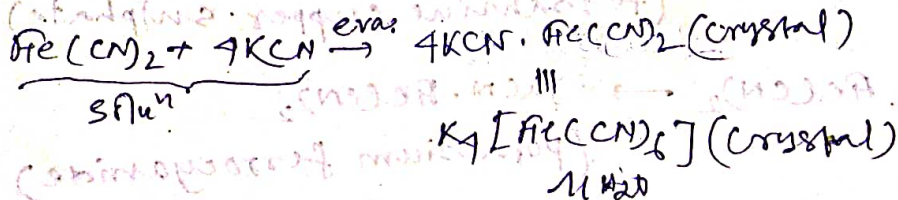 Fe(CN)₂ + 4KCN eva. → 4KCN. Fe(CN)₂ (Crystal)
Solnⁿ |||
K₄[Fe(CN)₆] (Crystal)